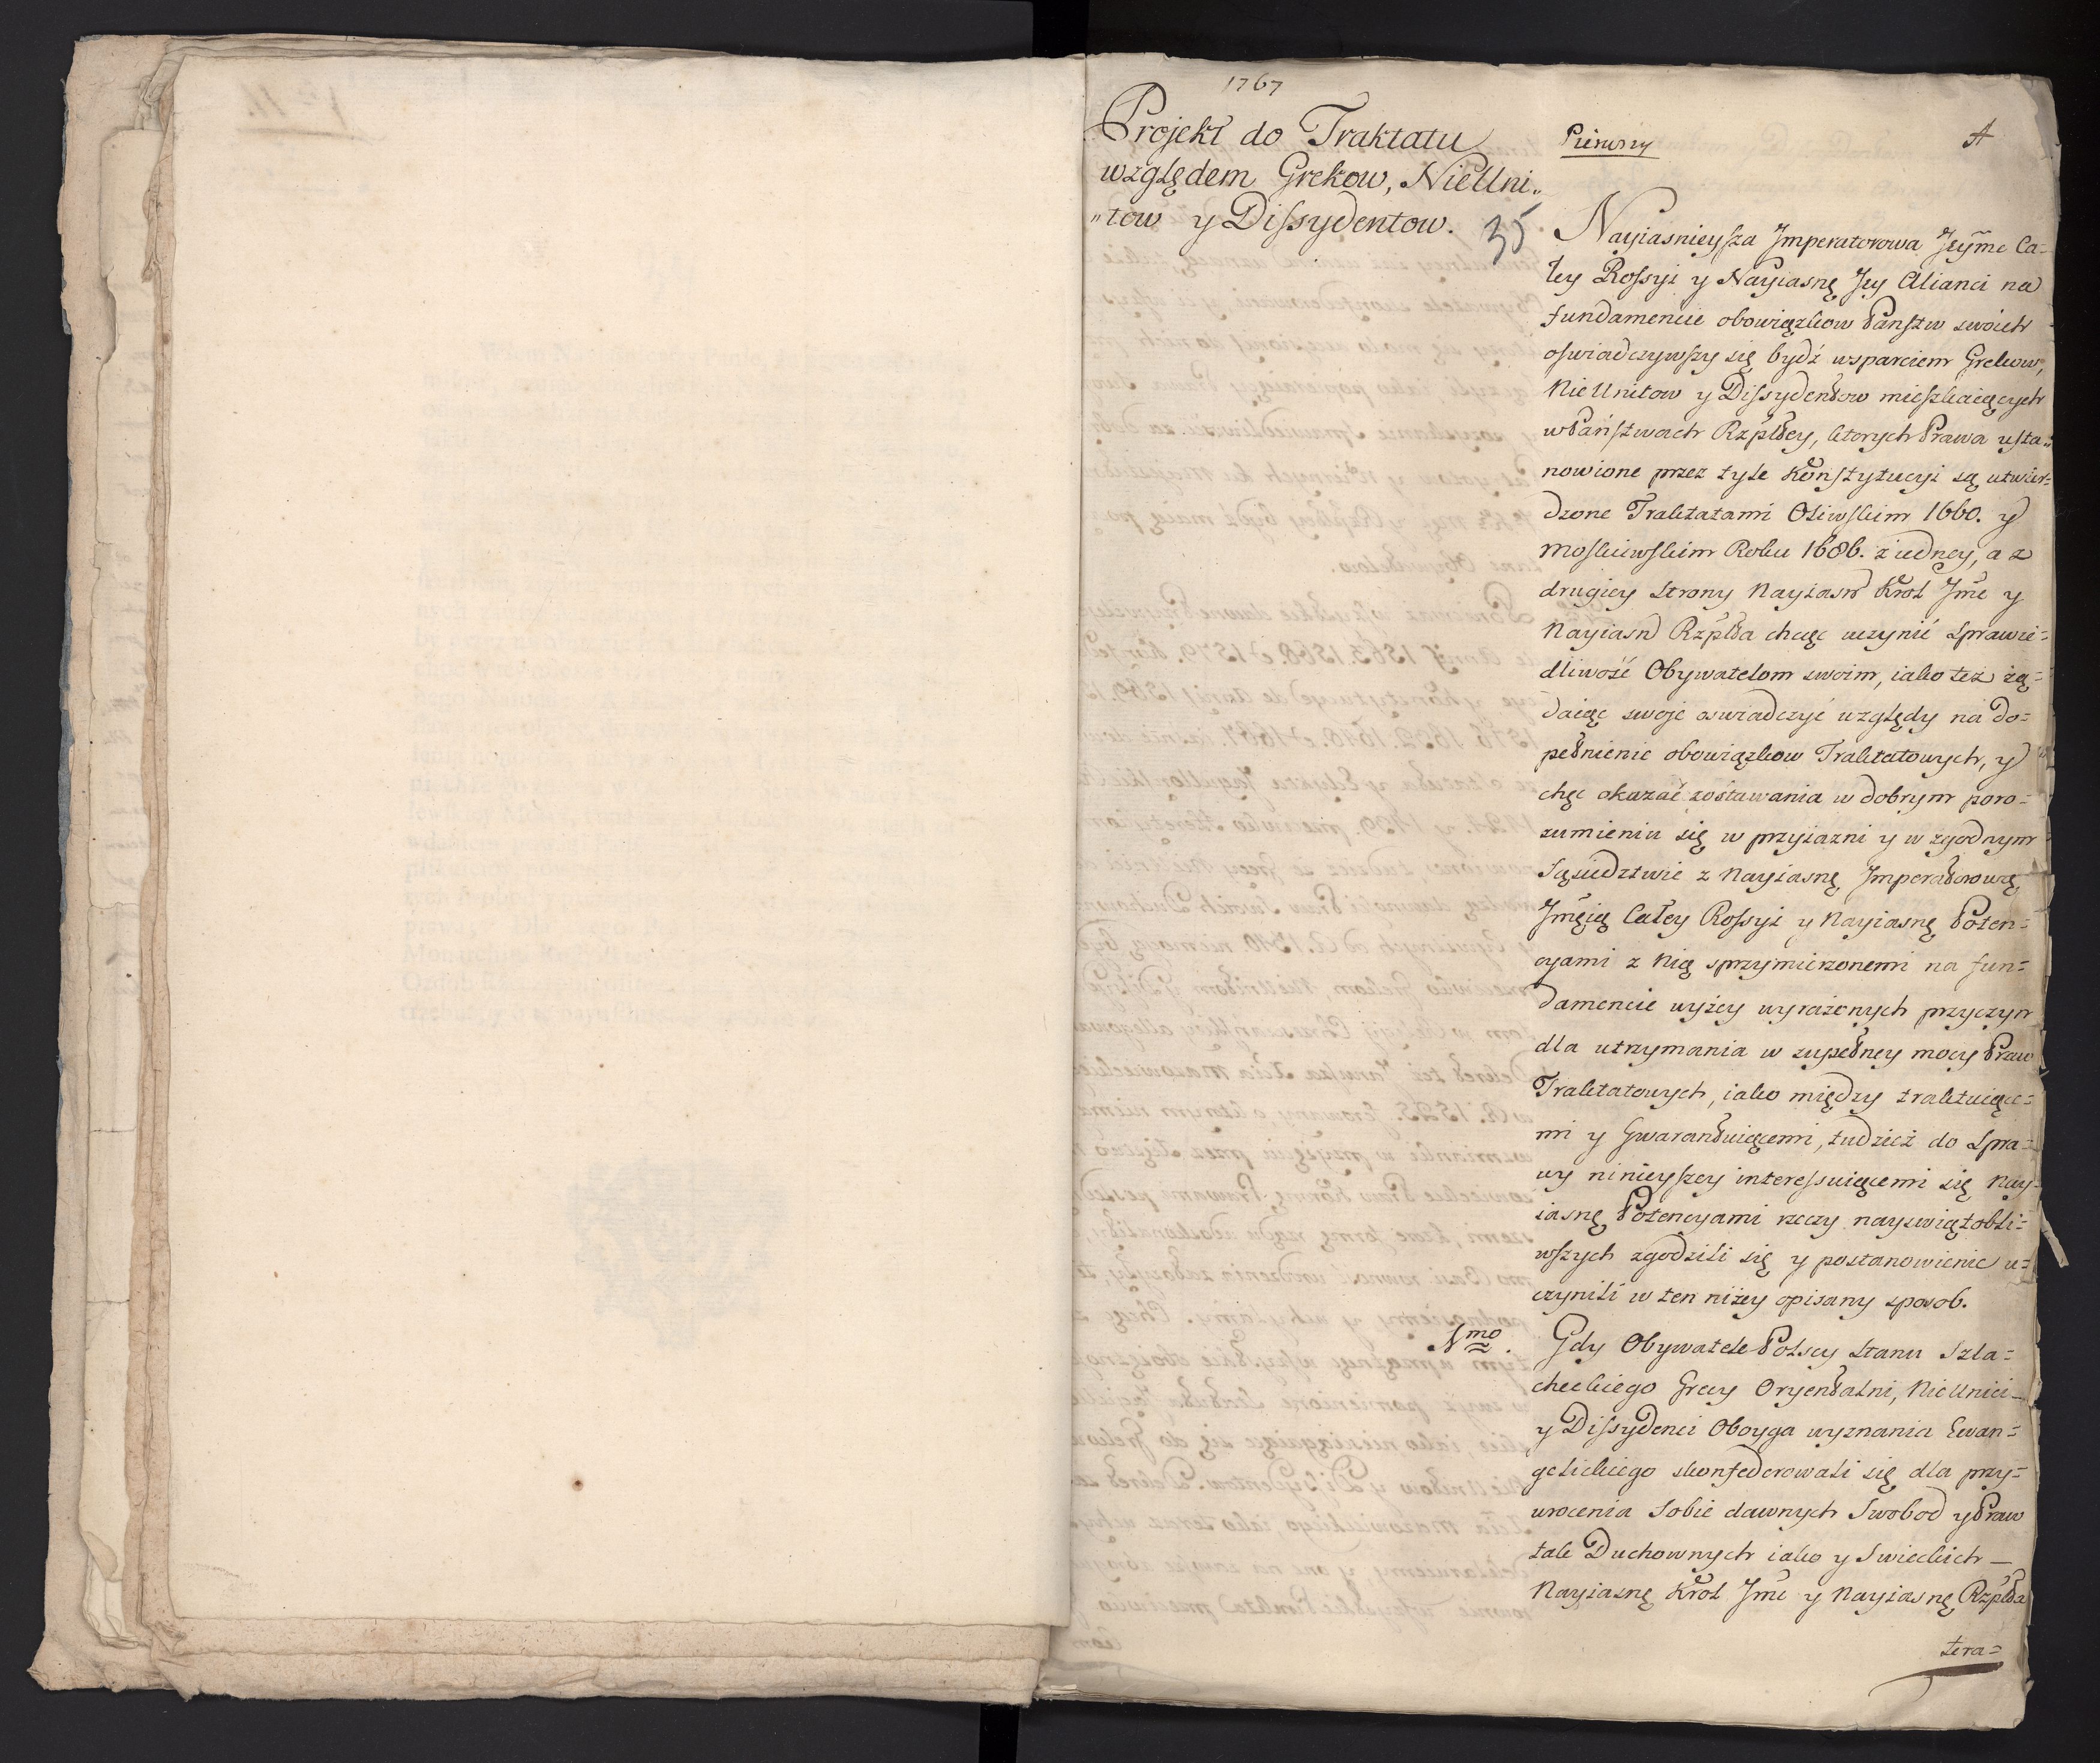 1767
Projekt do Traktatu
względem Grekow, NieUni„
„tow y Dissydentow.
35
Pierwszy
A
Nayiasnieysza Imperatorowa Jeyme Ca=
łey Rossyi y Nayiasnę Jey Alianci na
fundamencie obowiązkow Panstw swoich
oswiadczywszy się bydź wsparciem Grekow,
NieUnitow y Dissydentow mieszkaiących
w Państwach Rzpltey, ktorych Prawa usta=
nowione przez tyle Konstytucyi są utwier=
dzone Traktatami Oliwskim 1660. y
moskiewskim Roku 1686. z iedney, a z
drugiey strony Nayiasn Krol Jmc y
Nayiasn Rzplta chcąc uczynić sprawie=
dliwość Obywatelom swoim, iako też żą=
daiąc swoje oswiadczyć względy na do=
pełnienie obowiązkow Traktatowych, y
chęć okazać zostawania w dobrym poro=
zumieniu się w przyiazni y w zgodnym
Sąsiedztwie z Nayiasnę Imperatorową
Jmcią Całey Rossyi y Nayiasnę Poten=
cyami z Nią sprzymierzonemi na fun=
damencie wyżey wyrażonych przyczyn
dla utrzymania w zupełney mocy Praw
Traktatowych, iako między traktuiące=
mi y Gwarantuiącemi, tudzież do Spra=
wy ninieyszey interessuiącemi się Nay=
iasnę Potencyami rzeczy nayswiątobli=
wszych zgodzili się y postanowienie u=
czynili w ten niżey opisany sposob.
1mo. Gdy Obywatele Polscy stanu Szla=
checkiego Grecy Oryentalni, NieUnici
y Dissydenci Oboyga wyznania Ewan=
gelickiego skonfederowali się dla przy=
wrocenia sobie dawnych Swobod y Praw
tak Duchownych iako y Swieckich —
Nayiasnę Krol Jmc y Nayiasnę Rzplta
tera=